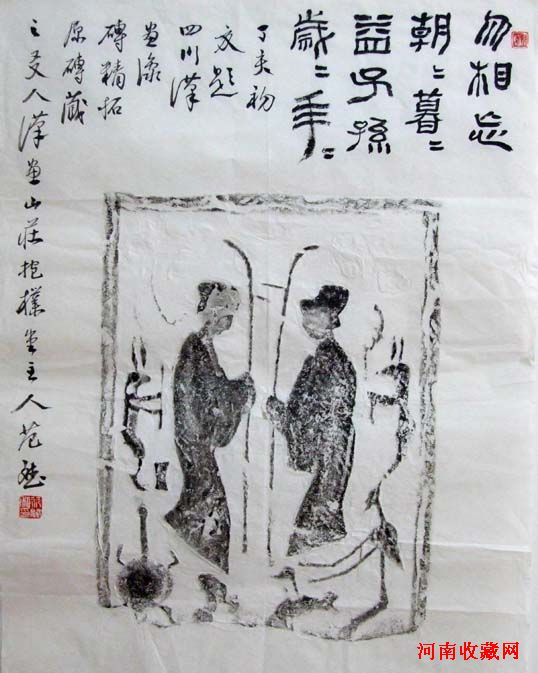 勿相忘
朝〻暮〻
益子孫
歲〻年〻
丁亥初
夏題
四川漢
畫像
磚精拓
原磚藏
之友人漢畫山莊抱樸堂主人范
河南收藏网